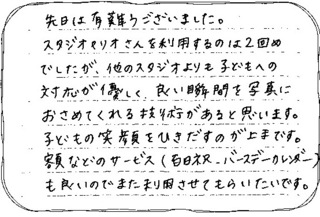 先日は有難うございました。
スタジオマリオさんを利用するのは2回め
でしたが、他のスタジオよりも子どもへの
対応が優しく、良い瞬間を写真に
おさめてくれる技術があると思います。
子どもの笑顔をひきだすのが上手です。
額などのサービス(百日祝、バースデーカレンダー)
も良いのでまた利用させてもらいたいです。